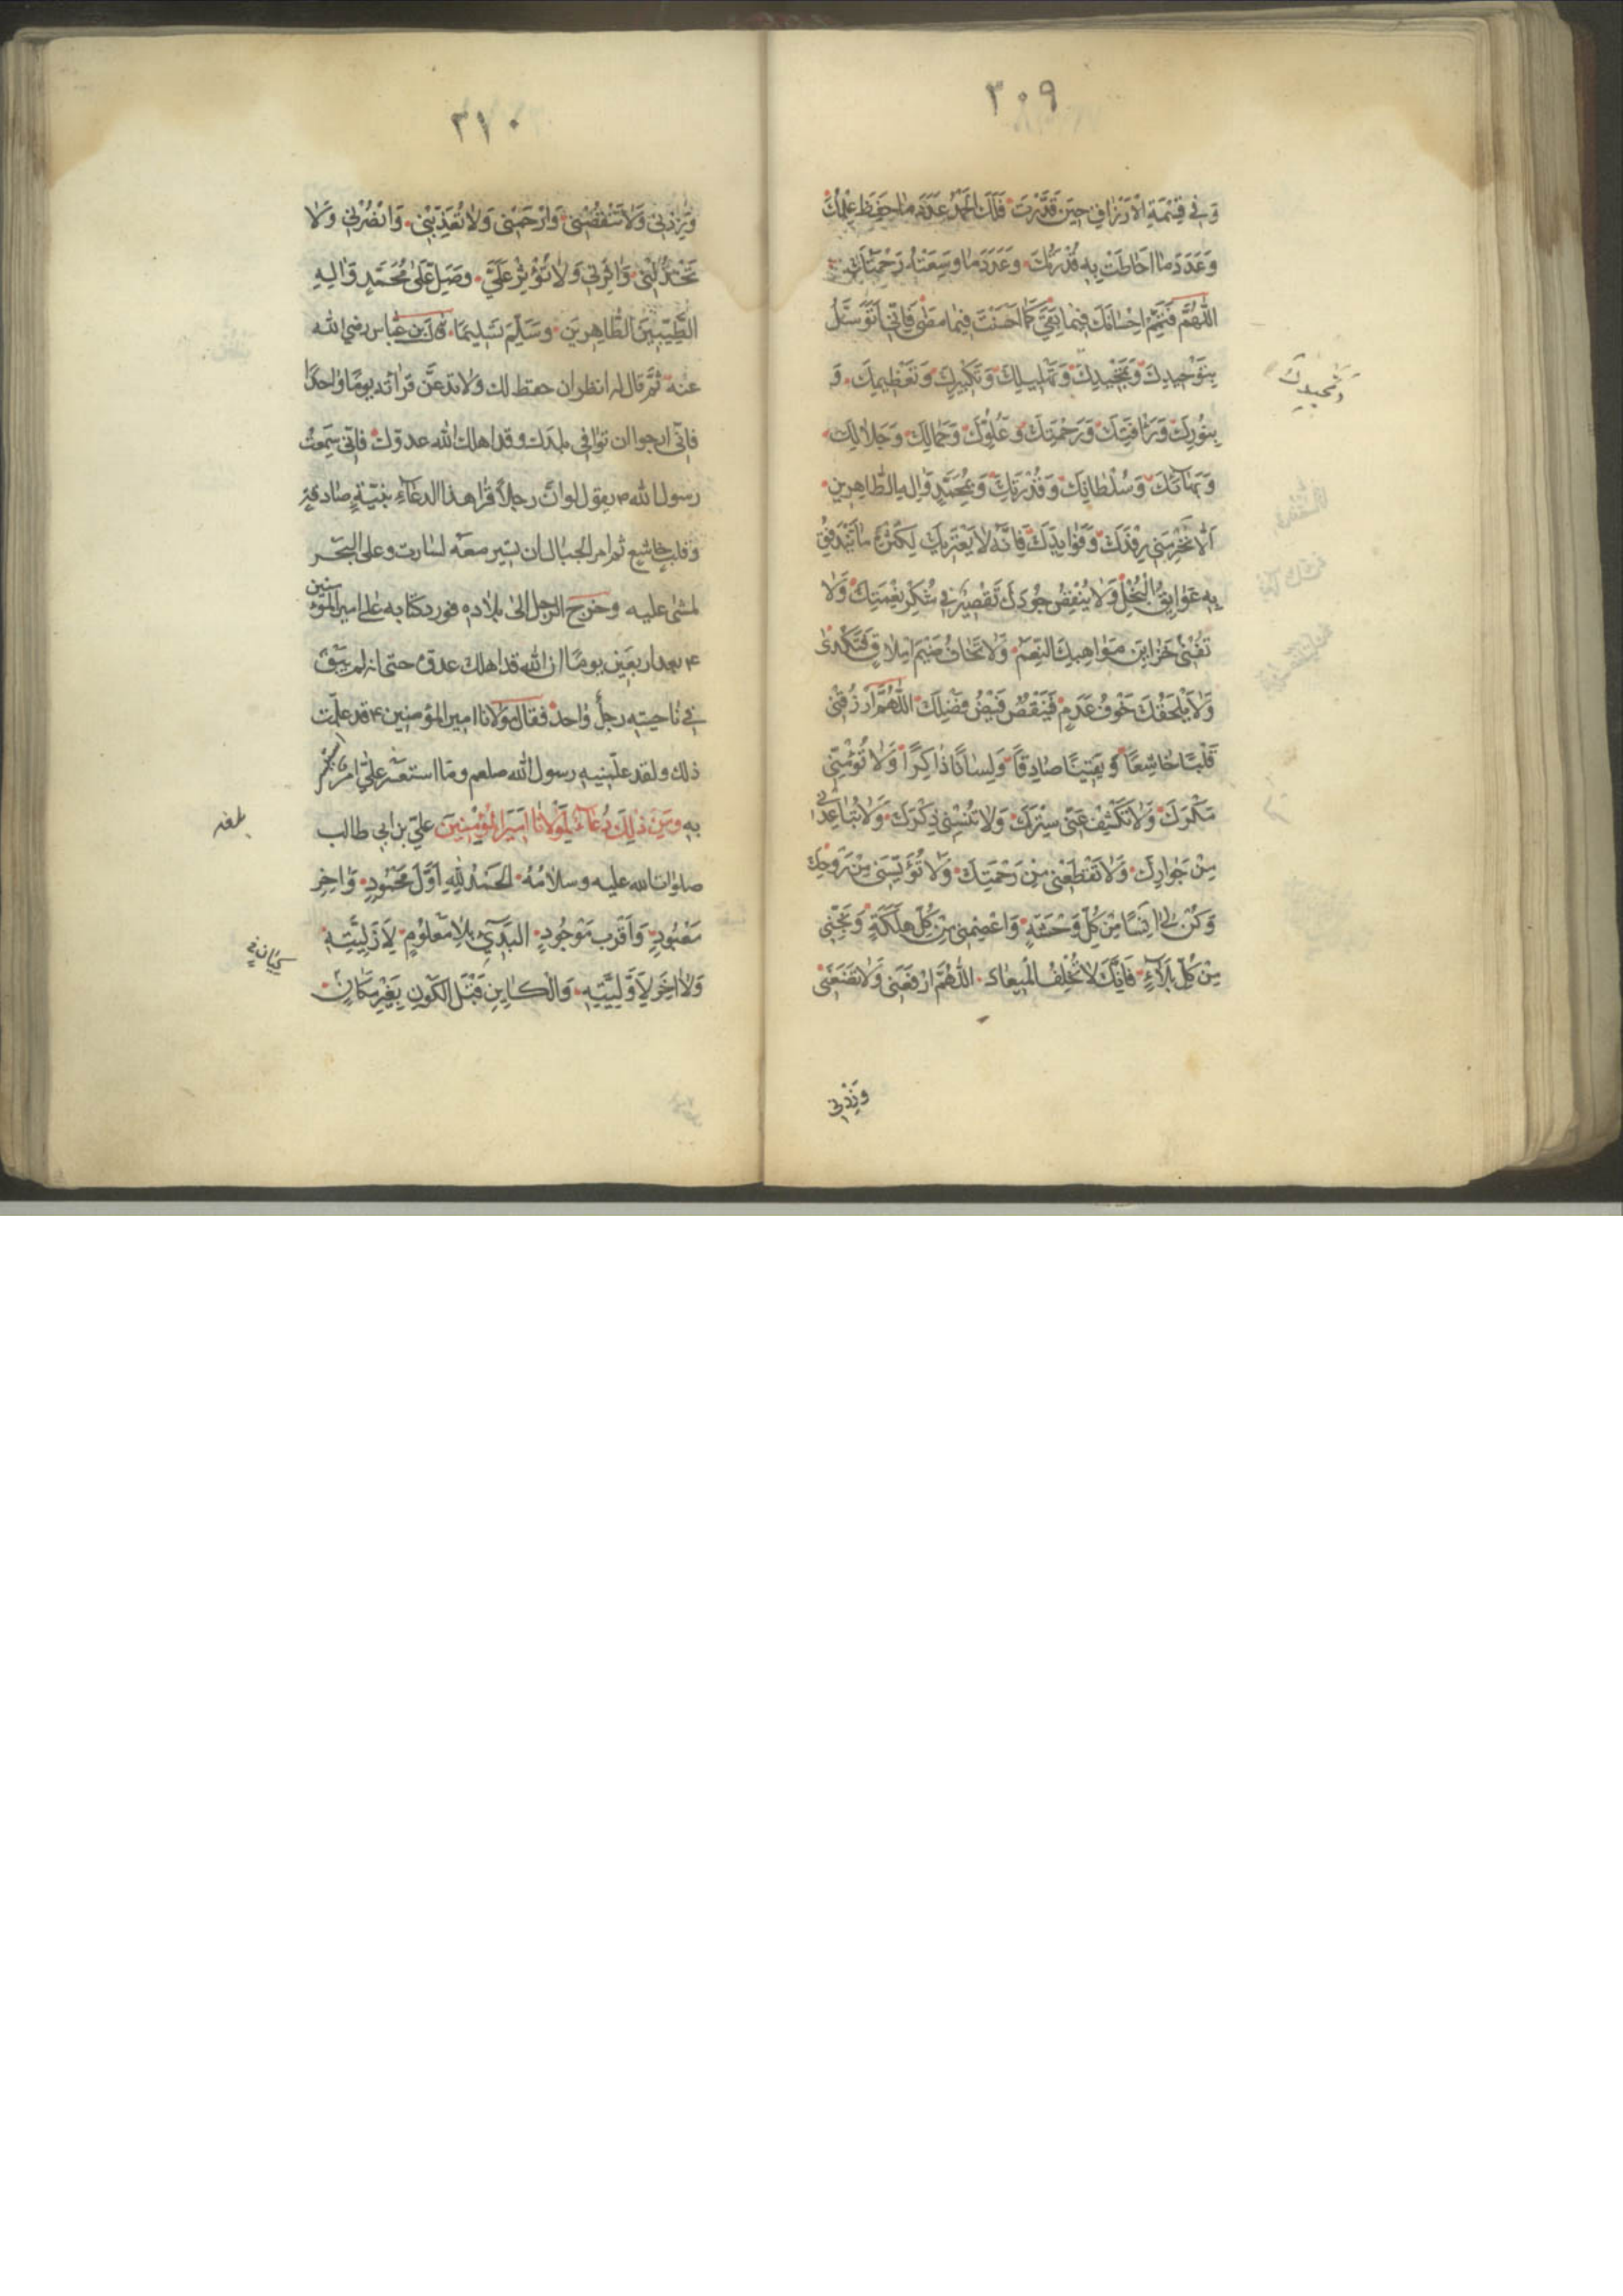 ٣٠٩
وَفي قِسْمَةِ الْاَرْزاقِ حينَ قَدَّرْتَ فَلَكَ الْحَمْدُ عَدَدَ ما حَفِظَ عِلْمُكَ
وَعَدَدَ ما اَحاطَتْ بِهِ قُدْرَتُكَ وَعَدَدَ ما وَسِعَتْهُ رَحْمَتُكَ
اَللّٰهُمَّ فَتَمِّمْ اِحْسانَكَ فيما بَقِيَ كَما اَحْسَنْتَ فيما مَضى فَاِنّي اَتَوَسَّلُ
بِتَوْحيدِكَ وَتَمْجيدِكَ وَتَهْليلِكَ وَتَكْبيرِكَ وَتَعْظيمِكَ وَ
وَتَحْميدِكَ
بِنُورِكَ وَرَأفَتِكَ وَرَحْمَتِكَ وَعُلُوِّكَ وَجَمالِكَ وَجَلالِكَ
وَبَهائِكَ وَسُلْطانِكَ وَقُدْرَتِكَ وَبِمُحَمَّدٍ وَالِهِ الطّاهِرينَ
اَلّا تَحْرِمَني رِفْدَكَ وَفَوائِدَكَ فَاِنَّهُ لا يَعْتَريكَ لِكَثْرَةِ ما يَتَدَفَّقُ
بِهِ عَوايِقُ الْبُخْلِ وَلا يُنْقِصُ جُودَكَ تَقْصيرٌ في شُكْرِ نِعْمَتِكَ وَلا
تُفْني خَزايِنَ مَواهِبِكَ النِّعَمُ وَلا تَخافُ ضَيْمَ اِمْلاقٍ فَتُكْدِيَ
وَلا يَلْحَقُكَ خَوْفُ عَدَمٍ فَيَنْقُصَ فَيْضُ فَضْلِكَ اَللّٰهُمَّ ارْزُقْني
قَلْبًا خاشِعًا وَيَقينًا صادِقًا وَلِسانًا ذاكِرًا وَلا تُؤْمِنّي
مَكْرَكَ وَلا تَكْشِفْ عَنّي سِتْرَكَ وَلا تُنْسِني ذِكْرَكَ وَلا تُباعِدْني
مِنْ جِوارِكَ وَلا تَقْطَعْني مِنْ رَحْمَتِكَ وَلا تُؤْيِسْني مِنْ رَوْحِكَ
وَكُنْ لي اَنيسًا مِنْ كُلِّ وَحْشَةٍ وَاعْصِمْني مِنْ كُلِّ هَلَكَةٍ وَنَجِّني
مِنْ كُلِّ بَلاءٍ فَاِنَّكَ لا تُخْلِفُ الْميعادَ اَللّٰهُمَّ ارْفَعْني وَلا تَضَعْني
وَزِدْني
٣١٠
وَزِدْني وَلا تَنْقُصْني وَارْحَمْني وَلا تُعَذِّبْني وَانْصُرْني وَلا
تَخْذُلْني وَاثِرْني وَلا تُؤْثِرْ عَلَيَّ وَصَلِّ عَلى مُحَمَّدٍ وَالِهِ
الطَّيِّبينَ الطّاهِرينَ وَسَلِّمْ تَسْليمًا قال ابن عباس رضي الله
عنه ثم قال له انظر ان حفظ لك ولا تدعن قرائته يوما واحدا
فاني ارجو ان توافي بلدك وقد اهلك الله عدوك فاني سمعت
رسول الله ص يقول لو ان رجلا قرا هذا الدعاء بنية صادقة
وقلب خاشع ثم امر الجبال ان تسير معه لسارت وعلى البحر
لمشى عليه وخرج الرجل الى بلاده فورد كتابه على امير المؤمنين
ع بعد اربعين يوما ان الله قد اهلك عدوه حتى انه لم يبق
في ناحيته رجل واحد فقال مولانا امير المؤمنين ع قد علمت
ذلك ولقد علمنيه رسول الله صلعم وما استعسر علي امر
به ومن ذلك دعاء لمولانا امير المؤمنين علي بن ابي طالب
صلوات الله عليه وسلامه اَلْحَمْدُ لِلّٰهِ اَوَّلَ مَحْمُودٍ وَاخِرَ
مَعْبُودٍ وَاَقْرَبَ مَوْجُودٍ اَلْبَدِيءِ بِلا مَعْلُومٍ لِاَزَلِيَّتِهِ
وَلا اخِرَ لِاَوَّلِيَّتِهِ وَالْكايِنِ قَبْلَ الْكَوْنِ بِغَيْرِ كَيانٍ